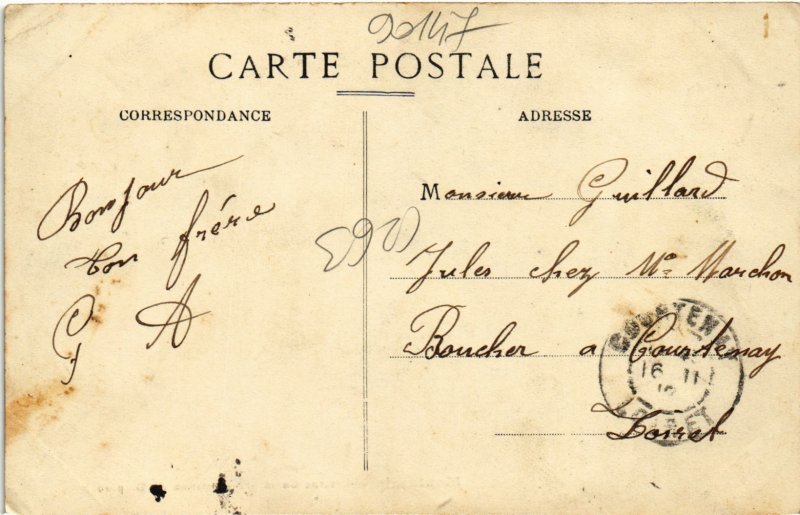 90147
CARTE POSTALE
CORRESPONDANCE
ADRESSE
Bonjour
ton frère
G A
Monsieur Guillard
Jules chez Mr Marchon
Boucher a Courtenay
Loiret
COURTENAY
16 11
LOIRET